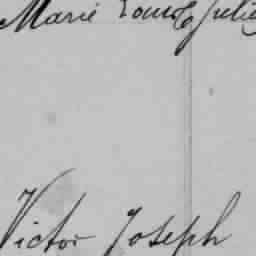 Marie Louise Julie
Victor Joseph